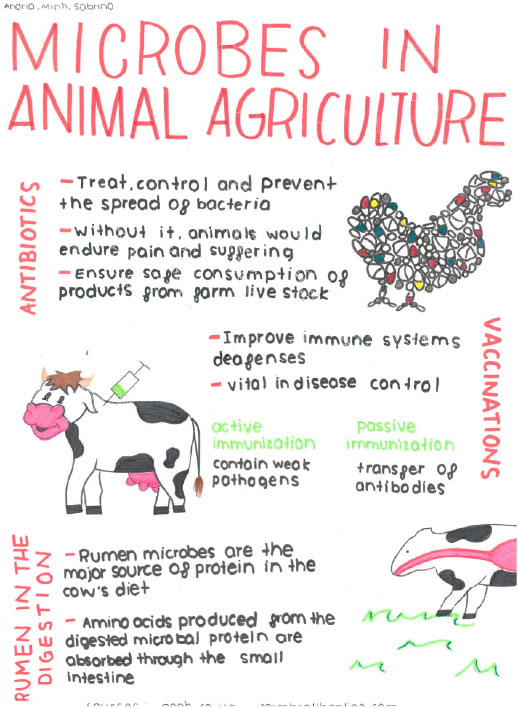 Andria, Minh, Sabrina
MICROBES IN
ANIMAL AGRICULTURE
ANTIBIOTICS
- Treat, control and prevent
the spread of bacteria
- without it, animals would
endure pain and suffering
- Ensure safe consumption of
products from farm live stock
VACCINATIONS
- Improve immune systems
deafenses
- vital in disease control
active
immunization
contain weak
pathogens
passive
immunization
transfer of
antibodies
RUMEN IN THE
DIGESTION
- Rumen microbes are the
major source of protein in the
cow's diet
- Amino acids produced from the
digested microbal protein are
absorbed through the small
intestine